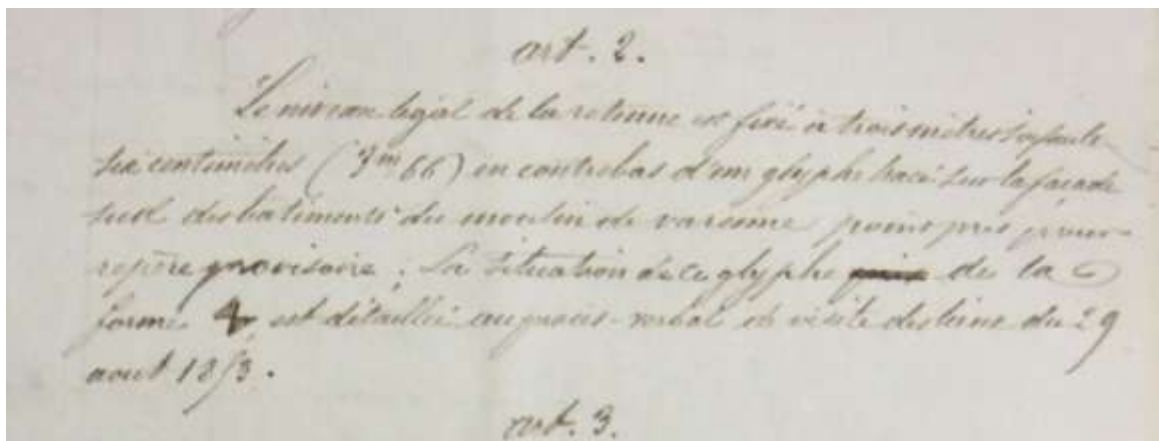 art. 2.
Le niveau légal de la retenue est fixé à trois mètres soixante
six centimètres (3m66) en contrebas d'un glyphe tracé sur la façade
sud des batiments du moulin de varenne point pris pour
repère provisoire. La situation de ce glyphe de la
forme est détaillée au procès-verbal de visite des lieux du 29
aout 1853.
art. 3.